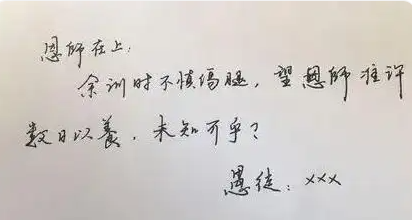 恩师在上:
余训时不慎伤腿，望恩师准许
数日以养，未知可乎？
愚徒：xxx